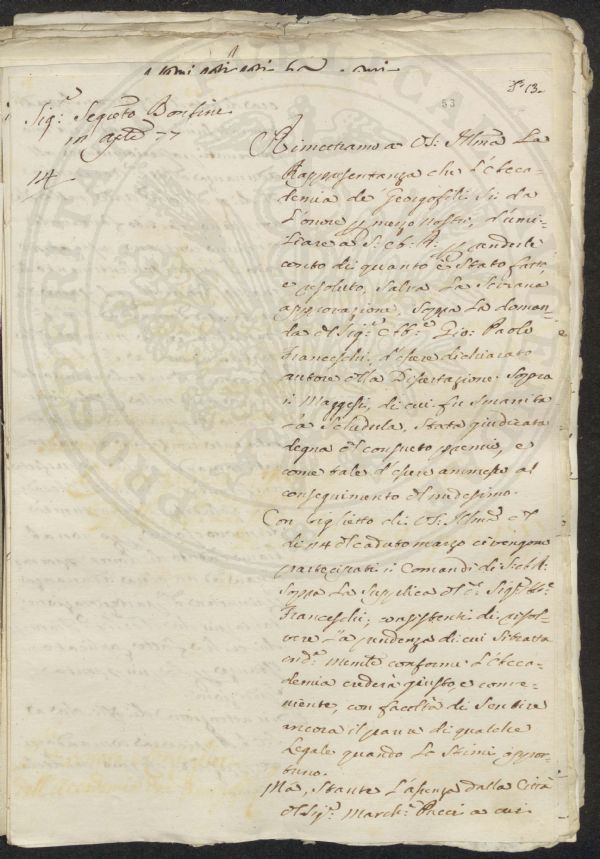 N.º 13.
53
Sig.r Segret.o Bonfini
14
Rimettiamo a VS: Illma La
Rappresentanza che L'Acca-
demia de Georgofili si dà
L'onore p mezzo nostro, d'umi-
liare a S: A: R: p renderle
conto di quanto è stato fatto,
e risoluto, salva La Sovrana
approvazione, sopra La doman-
da del Sig.r Abb.e Gio: Paolo
Franceschi, d'essere dichiarato
autore della Dissertazione sopra
i Maggesi, di cui fu smarrita
La Schedula, stata giudicata
degna del consueto premio, e
come tale d'essere ammesso al
conseguimento del medesimo.
Con biglietto di VS: Illma del
dì 14 del caduto marzo ci vengono
partecipati i Comandi di S: A: R:
sopra La supplica del d.o Sig.r Abb.e
Franceschi, consistenti di risol-
vere La pendenza di cui si tratta
mente conforme L'Acca-
demia crederà giusto, e conve-
niente, con facoltà di sentire
ancora il parere di qualche
Legale quando Lo stimi oppor-
tuno.
Ma, stante L'assenza dalla Città
del Sig.r March.e Pucci a cui